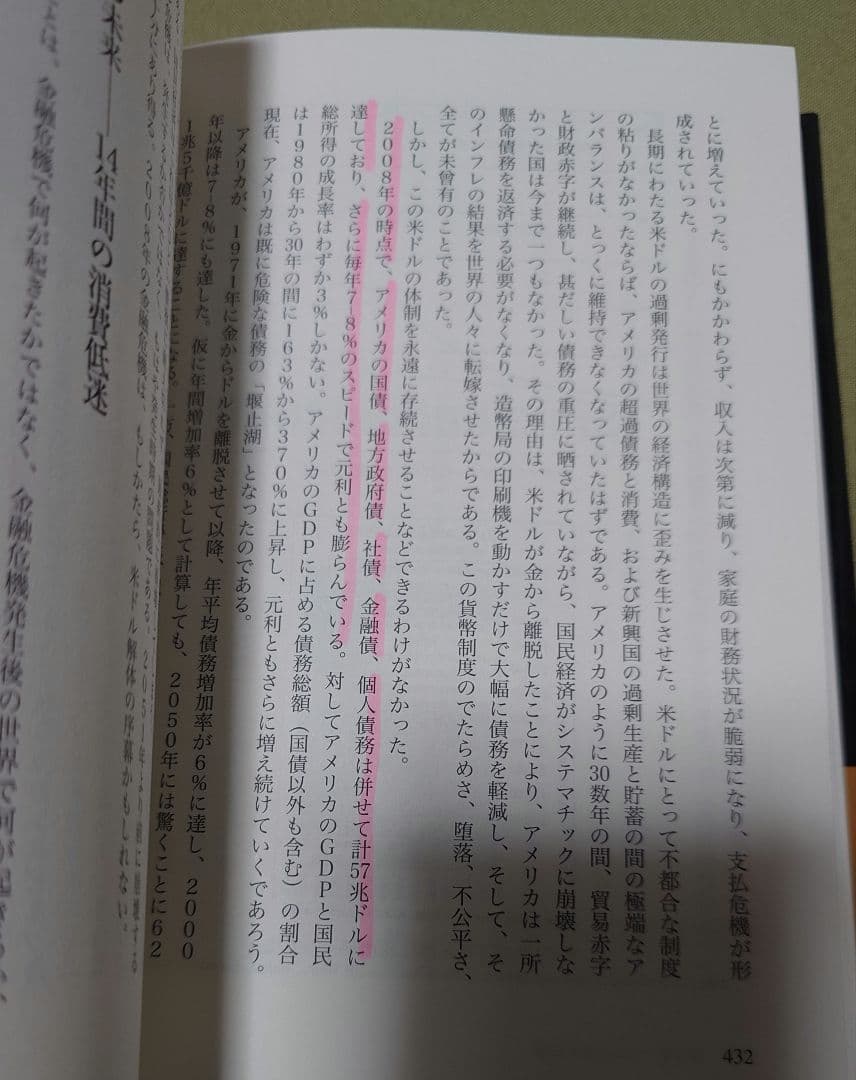 とに増えていった。にもかかわらず、収入は次第に減り、家庭の財務状況が脆弱になり、支払危機が形
成されていった。
長期にわたる米ドルの過剰発行は世界の経済構造に歪みを生じさせた。米ドルにとって不都合な制度
の粘りがなかったならば、アメリカの超過債務と消費、および新興国の過剰生産と貯蓄の間の極端なア
ンバランスは、とっくに維持できなくなっていたはずである。アメリカのように30数年の間、貿易赤字
と財政赤字が継続し、甚だしい債務の重圧に晒されていながら、国民経済がシステマチックに崩壊しな
かった国は今まで一つもなかった。その理由は、米ドルが金から離脱したことにより、アメリカは一所
懸命債務を返済する必要がなくなり、造幣局の印刷機を動かすだけで大幅に債務を軽減し、そして、そ
のインフレの結果を世界の人々に転嫁させたからである。この貨幣制度のでたらめさ、堕落、不公平さ、
全てが未曾有のことであった。
しかし、この米ドルの体制を永遠に存続させることなどできるわけがなかった。
2008年の時点で、アメリカの国債、地方政府債、社債、金融債、個人債務は併せて計57兆ドルに
達しており、さらに毎年7-8%のスピードで元利とも膨らんでいる。対してアメリカのGDPと国民
総所得の成長率はわずか3%しかない。アメリカのGDPに占める債務総額（国債以外も含む）の割合
は1980年から30年の間に163%から370%に上昇し、元利ともさらに増え続けていくであろう。
現在、アメリカは既に危険な債務の「堰止湖」となったのである。
アメリカが、1971年に金からドルを離脱させて以降、年平均債務増加率が6%に達し、2000
年以降は7-8%にも達した。仮に年間増加率6%として計算しても、2050年には驚くことに62
1兆5千億ドルに達することになる。
米ドル解体の序幕かもしれない。
432
未来――14年間の消費低迷
金融危機で何が起きたかではなく、金融危機発生後の世界で何が起きるか、